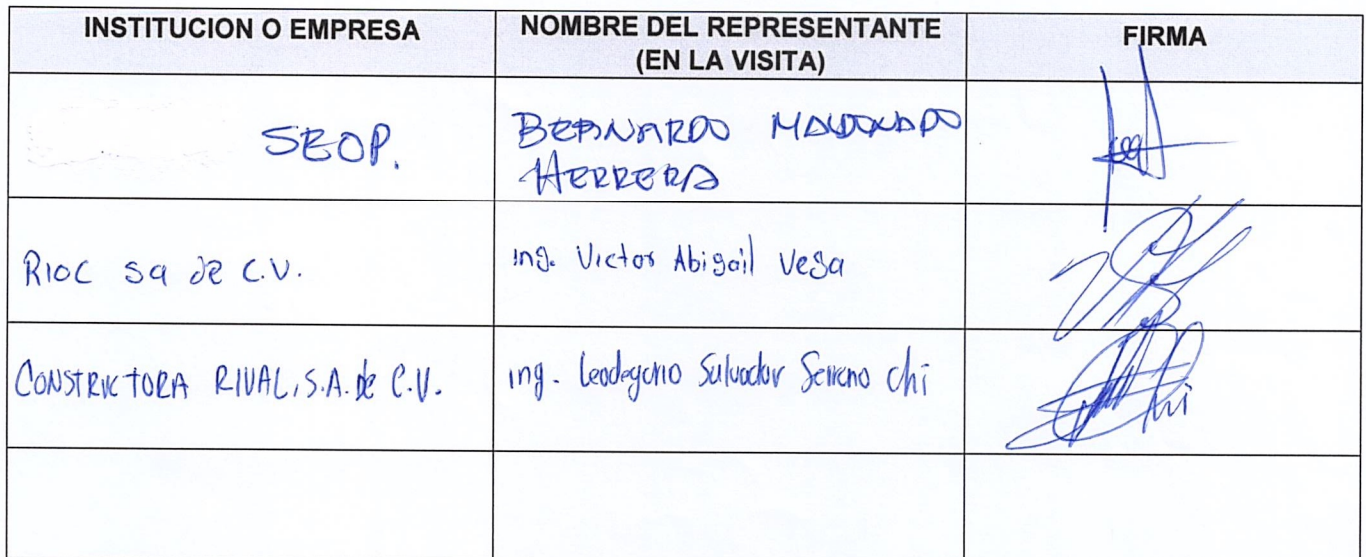 INSTITUCION O EMPRESA
NOMBRE DEL REPRESENTANTE
(EN LA VISITA)
FIRMA
SEOP.
BERNARDO MALDONADO
HERRERA
RIOC sa de C.V.
ing. Victor Abigail Vega
CONSTRUCTORA RIVAL, S.A. de C.V.
ing. Leodegario Salvador Serrano Chi